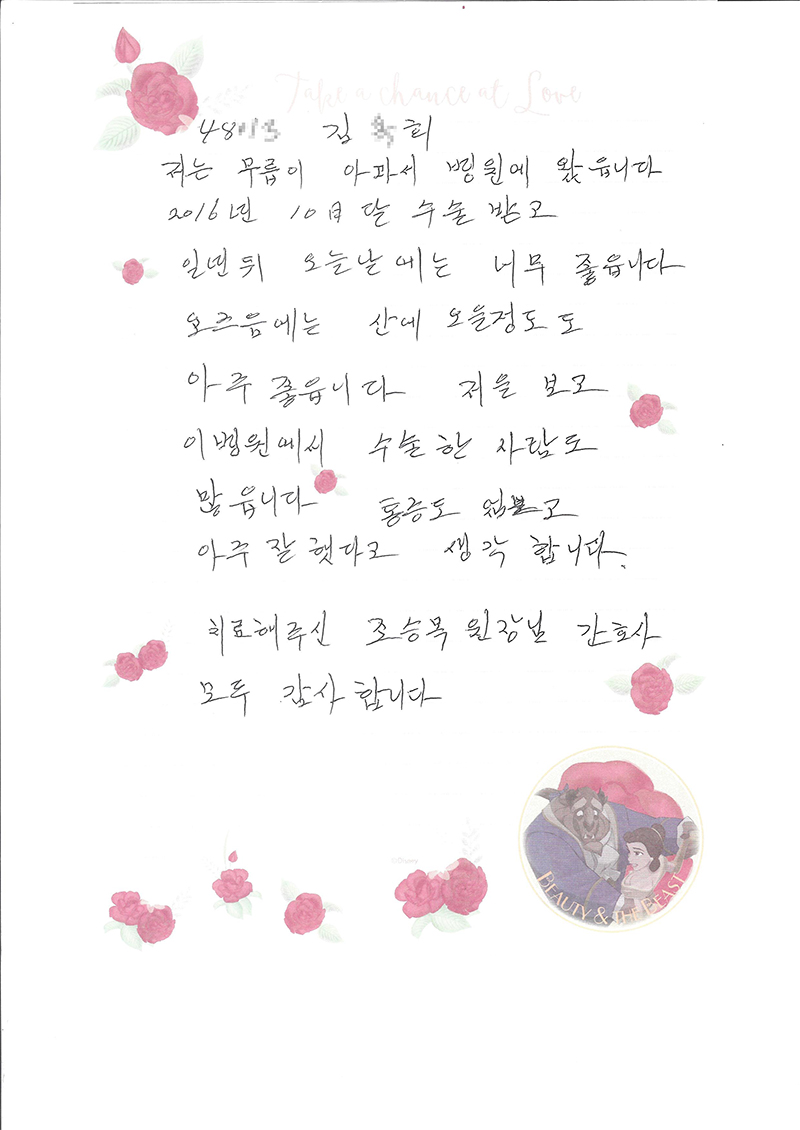 Take a chance at Love
48 김 희
저는 무릎이 아파서 병원에 왔읍니다
2016년 10日 달 수술 받고
일년뒤 오늘날에는 너무 좋읍니다
요즈음에는 산에 오을정도 도
아주 좋읍니다 저을 보고
이병원에서 수술한 사람도
많읍니다 통증도 고
아주 잘했다고 생각 합니다.
치료해주신 조승목 원장님 간호사
모두 감사합니다
©Disney
BEAUTY & THE BEAST